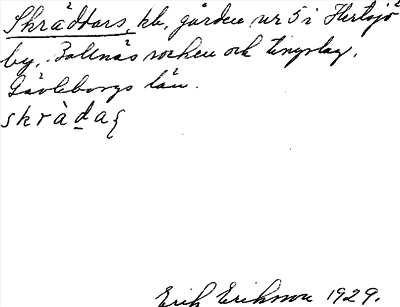 Skräddars, kb, gården nr 5 i Hertsjö
by, Bollnäs socken och tingslag,
Gävleborgs län.
skràdaʂ
Erik Eriksson 1929.